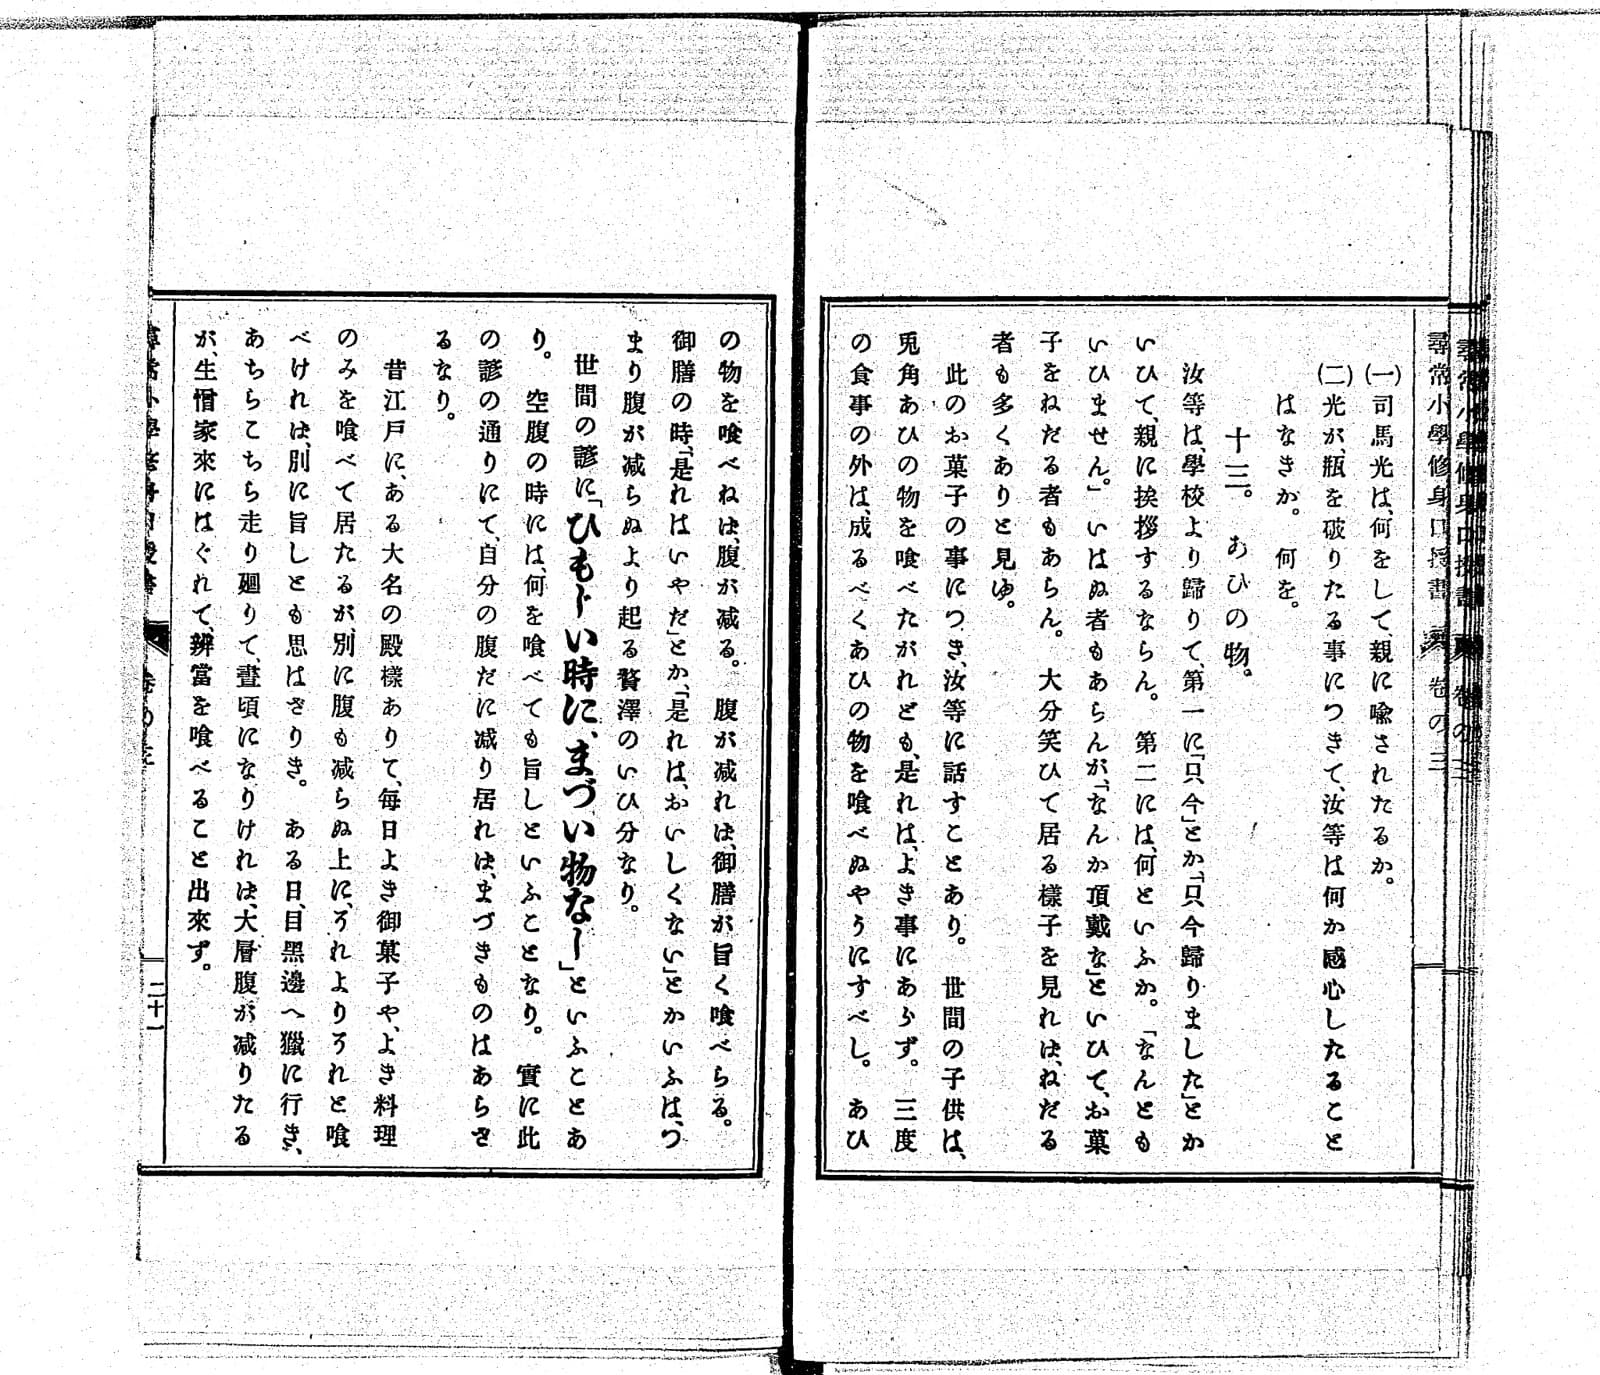 尋常小學修身口授書 卷の三
(一)司馬光は、何をして、親に喩されたるか。
(二)光が、瓶を破りたる事につきて、汝等は何か感心したること
はなきか。何を。
十三。 あひの物。
汝等は、學校より歸りて、第一に「只今」とか「只今歸りました」とか
いひて、親に挨拶するならん。第二には、何といふか。「なんとも
いひません。」いはぬ者もあらんが、「なんか頂戴な」といひて、お菓
子をねだる者もあらん。大分笑ひて居る樣子を見れは、ねだる
者も多くありと見ゆ。
此のお菓子の事につき、汝等に話すことあり。世間の子供は、
兎角あひの物を喰べたがれども、是れは、よき事にあらず。三度
の食事の外は、成るべくあひの物を喰べぬやうにすべし。あひ
の物を喰べねは、腹が减る。腹が减れは、御膳が旨く喰べらる。
御膳の時、「是れはいやだ」とか「是れは、おいしくない」とかいふは、つ
まり腹が减らぬより起る贅澤のいひ分なり。
世間の諺に「ひもじい時に、まづい物なし」といふことあ
り。空腹の時には、何を喰べても旨しといふことなり。實に此
の諺の通りにて、自分の腹だに减り居れは、まづきものはあらさ
るなり。
昔江戸に、ある大名の殿樣ありて、毎日よき御菓子や、よき料理
のみを喰べて居たるが別に腹も减らぬ上に、それよりそれと喰
べけれは、別に旨しとも思はざりき。ある日、目黑邊へ獵に行き、
あちらこちら走り廻りて、晝頃になりけれは、大層腹が减りたる
が、生憎家來にはぐれて、辨當を喰べること出來ず。
二十一